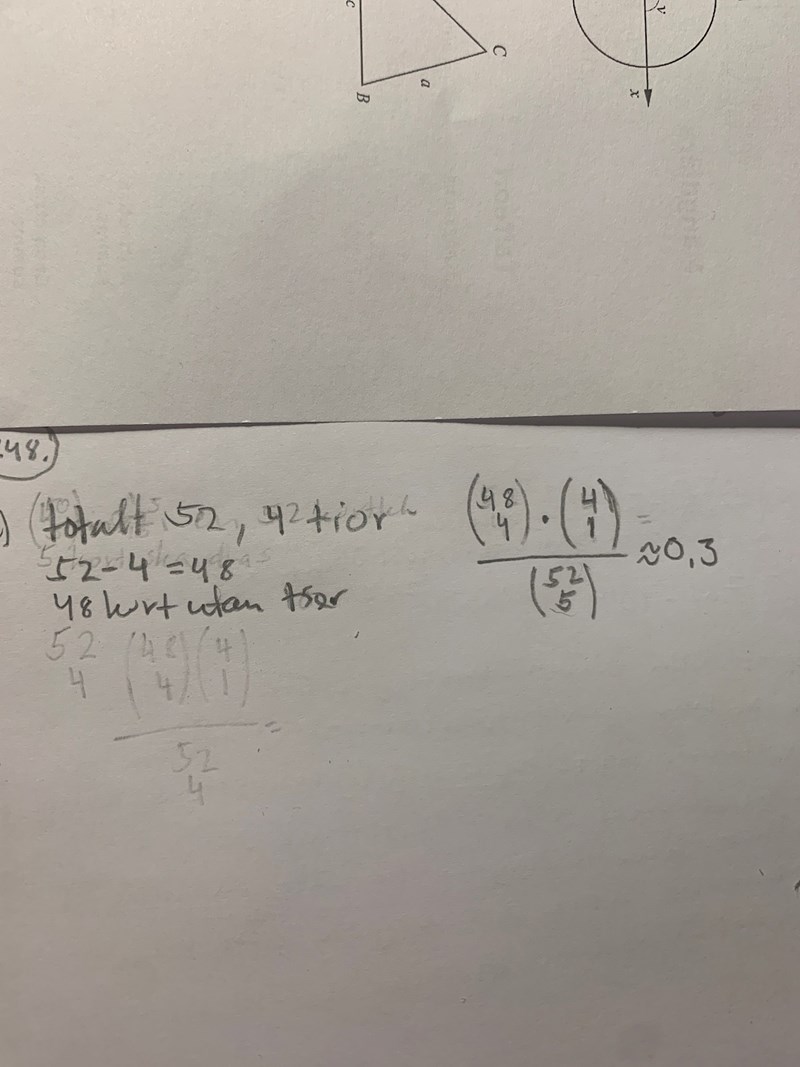 c
C
a
B
v
x
48.)
totalt 52, 4 tior
52-4=48
48 kort utan tior
52
4
(48 4)(4 1)
=
52
4
(48 4) · (4 1)
=
(52 5)
≈0,3